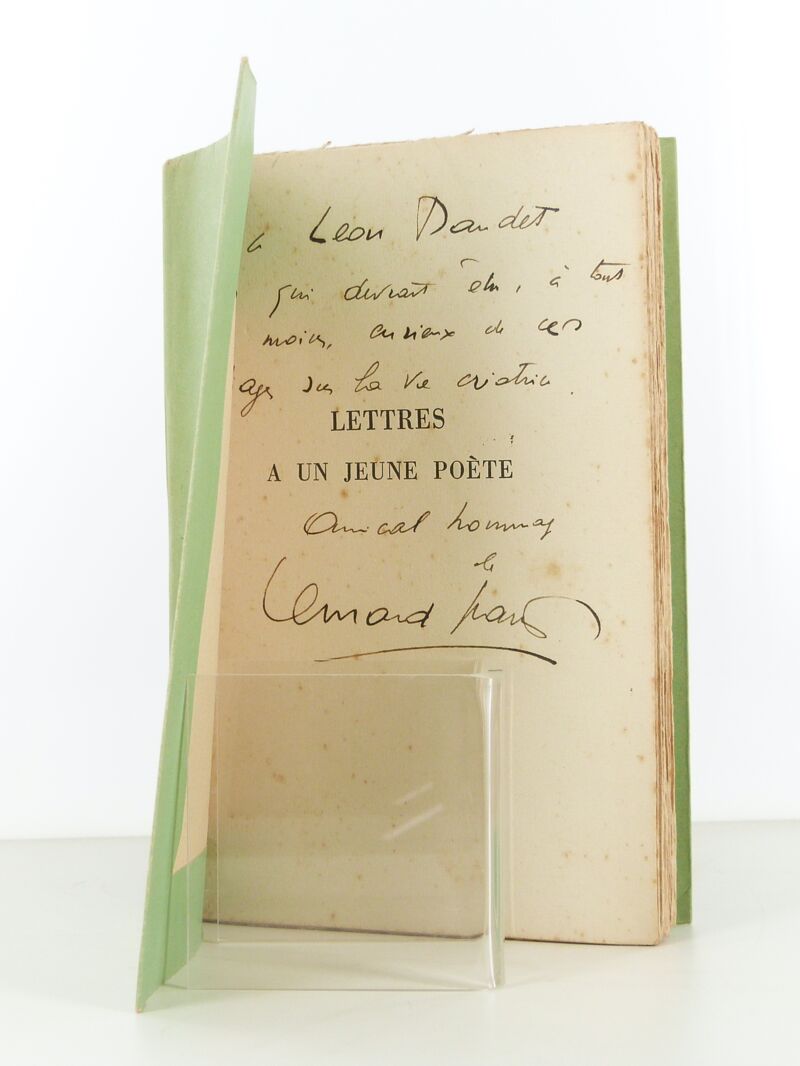 à Léon Daudet
qui devrait être, à tout
moins, curieux de ces
pages sur la vie créatrice.
LETTRES
A UN JEUNE POÈTE
Amical hommage
de
Bernard Grasset